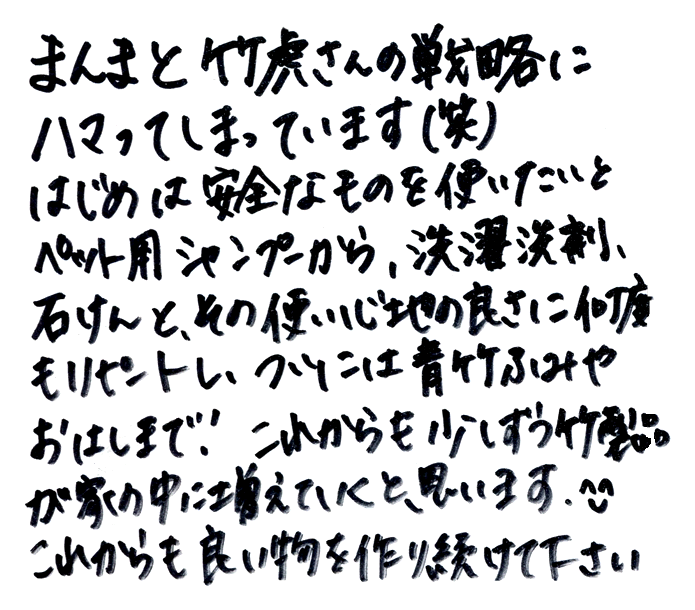 まんまと竹虎さんの戦略に
ハマってしまっています(笑)
はじめは安全なものを使いたいと
ペット用シャンプーから、洗濯洗剤、
石けんと、その使いじ地の良さに何度
もリピートし、ついには青竹ふみや
おはしまで!これからも少しずつ竹製品
が家の中に増えていくと、思います.^^
これからも良い物を作り続けて下さい